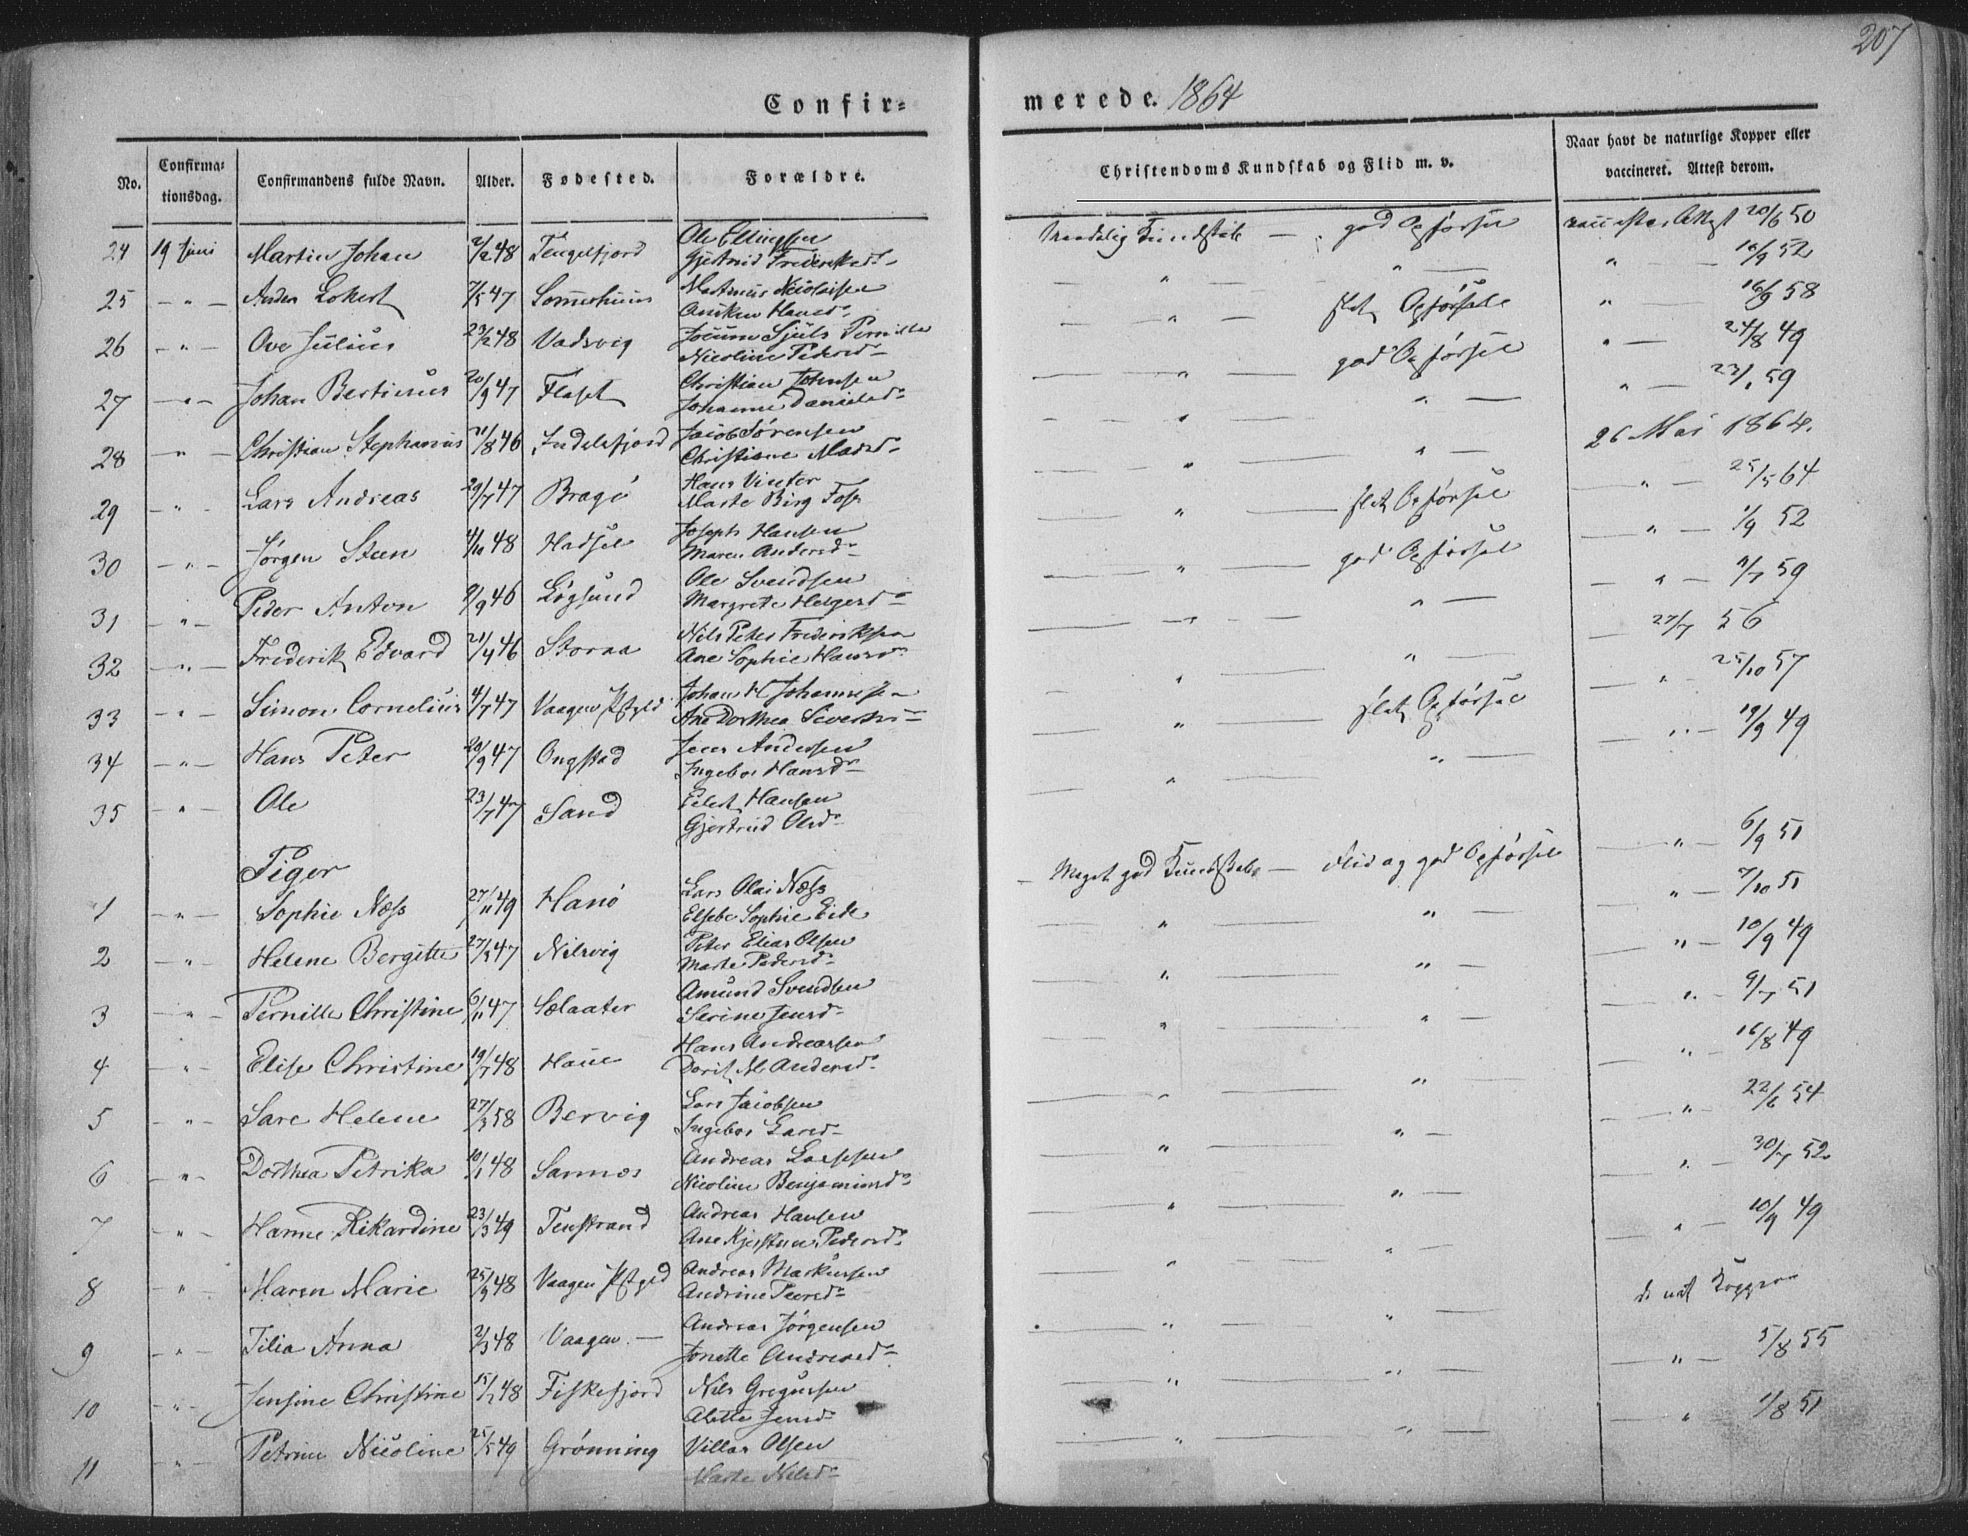 207
Confir-
merede. 1864
No.
Confirma-
tionsdag.
Confirmandens fulde Navn.
Alder.
Fødested.
Forældre.
Christendoms Kundskab og Flid m. v.
Naar havt de naturlige Kopper eller
vaccineret. Attest derom.
24 19 Juni Martin Johan 2/2 48 Tengelfjord Ole Ellingsen Kundskab — god Opførsel Attest 20/6 50
Gjertrud Frederiksd. " — " — " — 16/9 52
25 — " — Anders 7/5 47 Sommerhuus Martinus Nicolaisen
Hansd. " — slet Opførsel " — 16/9 58
26 — " — Ove Julius 23/2 48 Vadsvig Pernille
Nicoline Pedersd. " — god Opførsel " — 24/8 49
27 — " — Johan Bertinus 20/9 47 Flaset Christian Johnsen
Johanne Danielsd. " — " — " — 23/1 59
28 — " — Christian Stephanus 21/8 46 Indelsfjord Jacob Sørensen
Christiane Madsd. " — " — 26 Mai 1864.
29 — " — Lars Andreas 29/7 47 Bragø Hans Vinter
Marte Birg " — slet Opførsel " — 25/5 64
30 — " — Jørgen Steen 4/10 48 Hadsel Joseph Hansen
Maren Andersd. " — god Opførsel " — 1/9 52
31 — " — Peder Anton 9/9 46 Løgsund Ole Svendsen
Margrete Helgesd. — " — " — " — 11/7 59
32 — " — Frederik Edvard 21/4 46 Storaa Nils Peter Frederiksen
Ane Sophie Hansd. " — " — 27/7 56
33 — " — Simon Cornelius 4/7 47 Vaagen Johan H Johannesen
Ane Dorthea " — slet Opførsel " 25/10 57
34 — " — Hans Peter 20/9 47 Ongstad Jens Andersen
Ingebor Hansd. " — " — " — 19/9 49
35 — " — Ole 23/7 47 Sand Eilert Hansen
Gjertrud Olsd.
Piger
1 — " — Sophie Næss 27/11 49 Hanø Lars Olai Næss Meget god Kundskab — Flid og god Opførsel — " — 6/9 51
Elsebe Sophie Eide
2 — " — Helene Bergitte 27/3 47 Nilsvig Peter Elias Olsen " — " — " — 7/10 51
Marte Pedersd.
3 — " — Pernille Christine 6/11 47 Sælaater Amund Svendsen " — " — " — 10/9 49
Serine Jensd.
4 — " — Elise Christine 19/7 48 Haue Hans Andreassen " — " — " — 9/7 51
Dorit M Andersd.
5 — " — Sare Helene 27/3 58 Bervig Lars Jacobsen " — " — " — 16/8 49
Ingebor Larsd.
6 — " — Dorthea Petrika 10/1 48 Sannes Andreas Larssen " — " — " — 22/6 54
Nicoline Benjaminsd.
7 — " — Hanne Rikardine 23/3 49 Tenstrand Andreas Hansen " — " — " — 30/7 52
Ane Kjerstine Pedersd.
8 — " — Maren Marie 25/9 48 Vaagen Andreas Markussen " — " — " — 10/9 49
Andrine Peersd.
9 — " — Tilia Anna 2/3 48 Vaagen — Andreas Jørgensen " — " — d. nat Kopper
Jonette Andreasd.
10 — " — Jensine Christine 15/2 48 Fiskefjord Nils Gregussen " — " — " — 5/8 55
Alette Jensd.
11 — " — Petrine Nicoline 25/5 49 Grønning Villas Olsen " — " — " 1/8 51
Marte Nilsd.